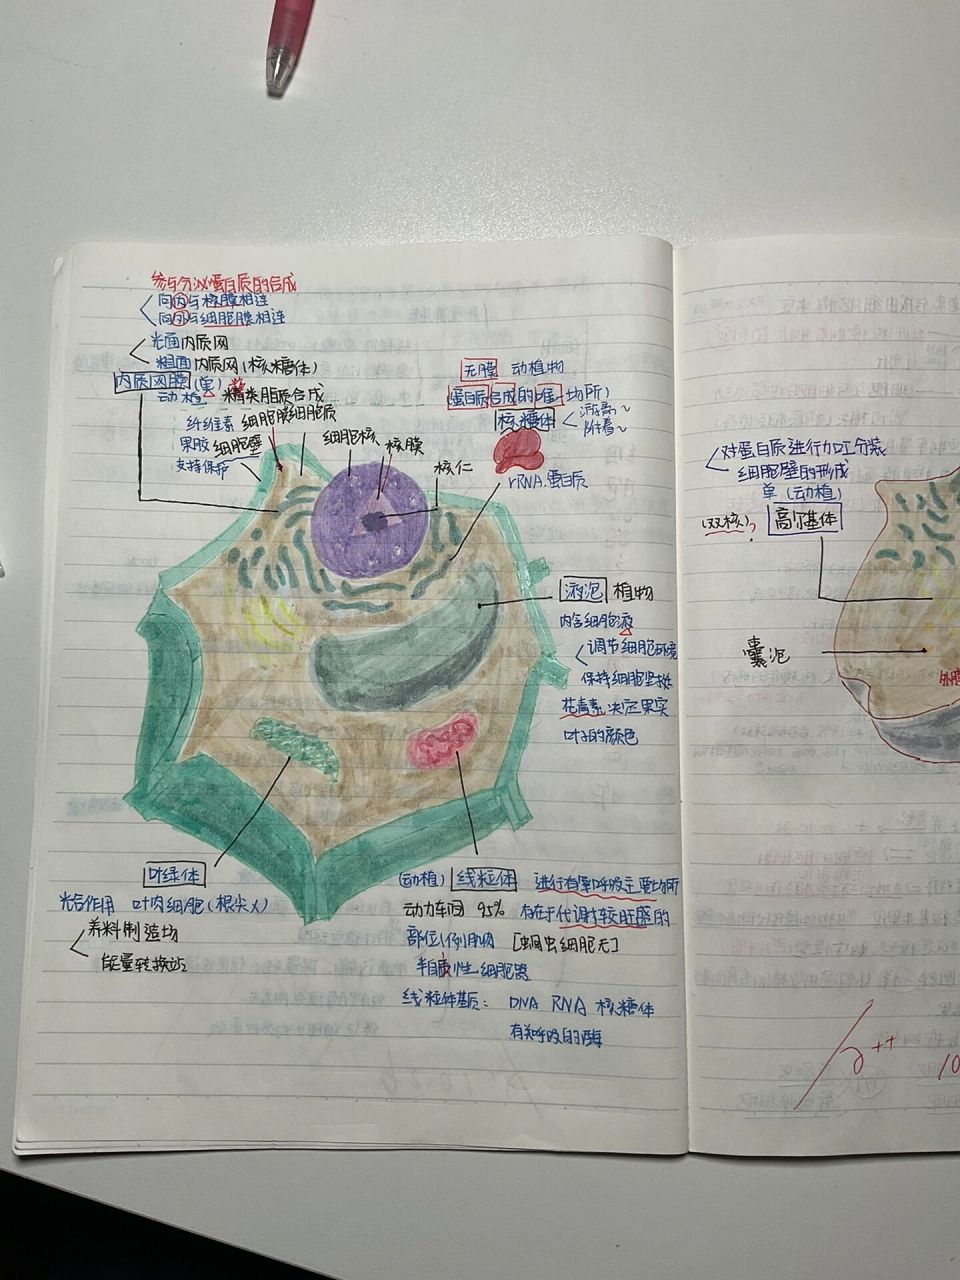 参与分泌蛋白质的合成
向内与核膜相连
向外与细胞膜相连
光面内质网
粗面内质网(核糖体)
内质网膜(单)
动植 糖类脂质合成
纤维素 细胞膜 细胞质
果胶 细胞壁
支持保护
细胞核 核膜
核仁
无膜 动植物
蛋白质合成的唯一场所)
核糖体
游离~
附着~
rRNA.蛋白质
液泡 植物
内含细胞液
调节细胞环境
保持细胞坚挺
花青素 决定果实
叶子的颜色
叶绿体
光合作用 叶肉细胞(根尖X)
养料制造场
能量转换站
(动植) 线粒体 进行有氧呼吸主要场所
动力车间 95% 存在于代谢较旺盛的
部位(例)肌肉 [蛔虫细胞无]
半自主性细胞器
线粒体基质: DNA RNA 核糖体
有关呼吸的酶
对蛋白质进行加工分装
细胞壁的形成
单(动植)
(双核)? 高尔基体
囊泡